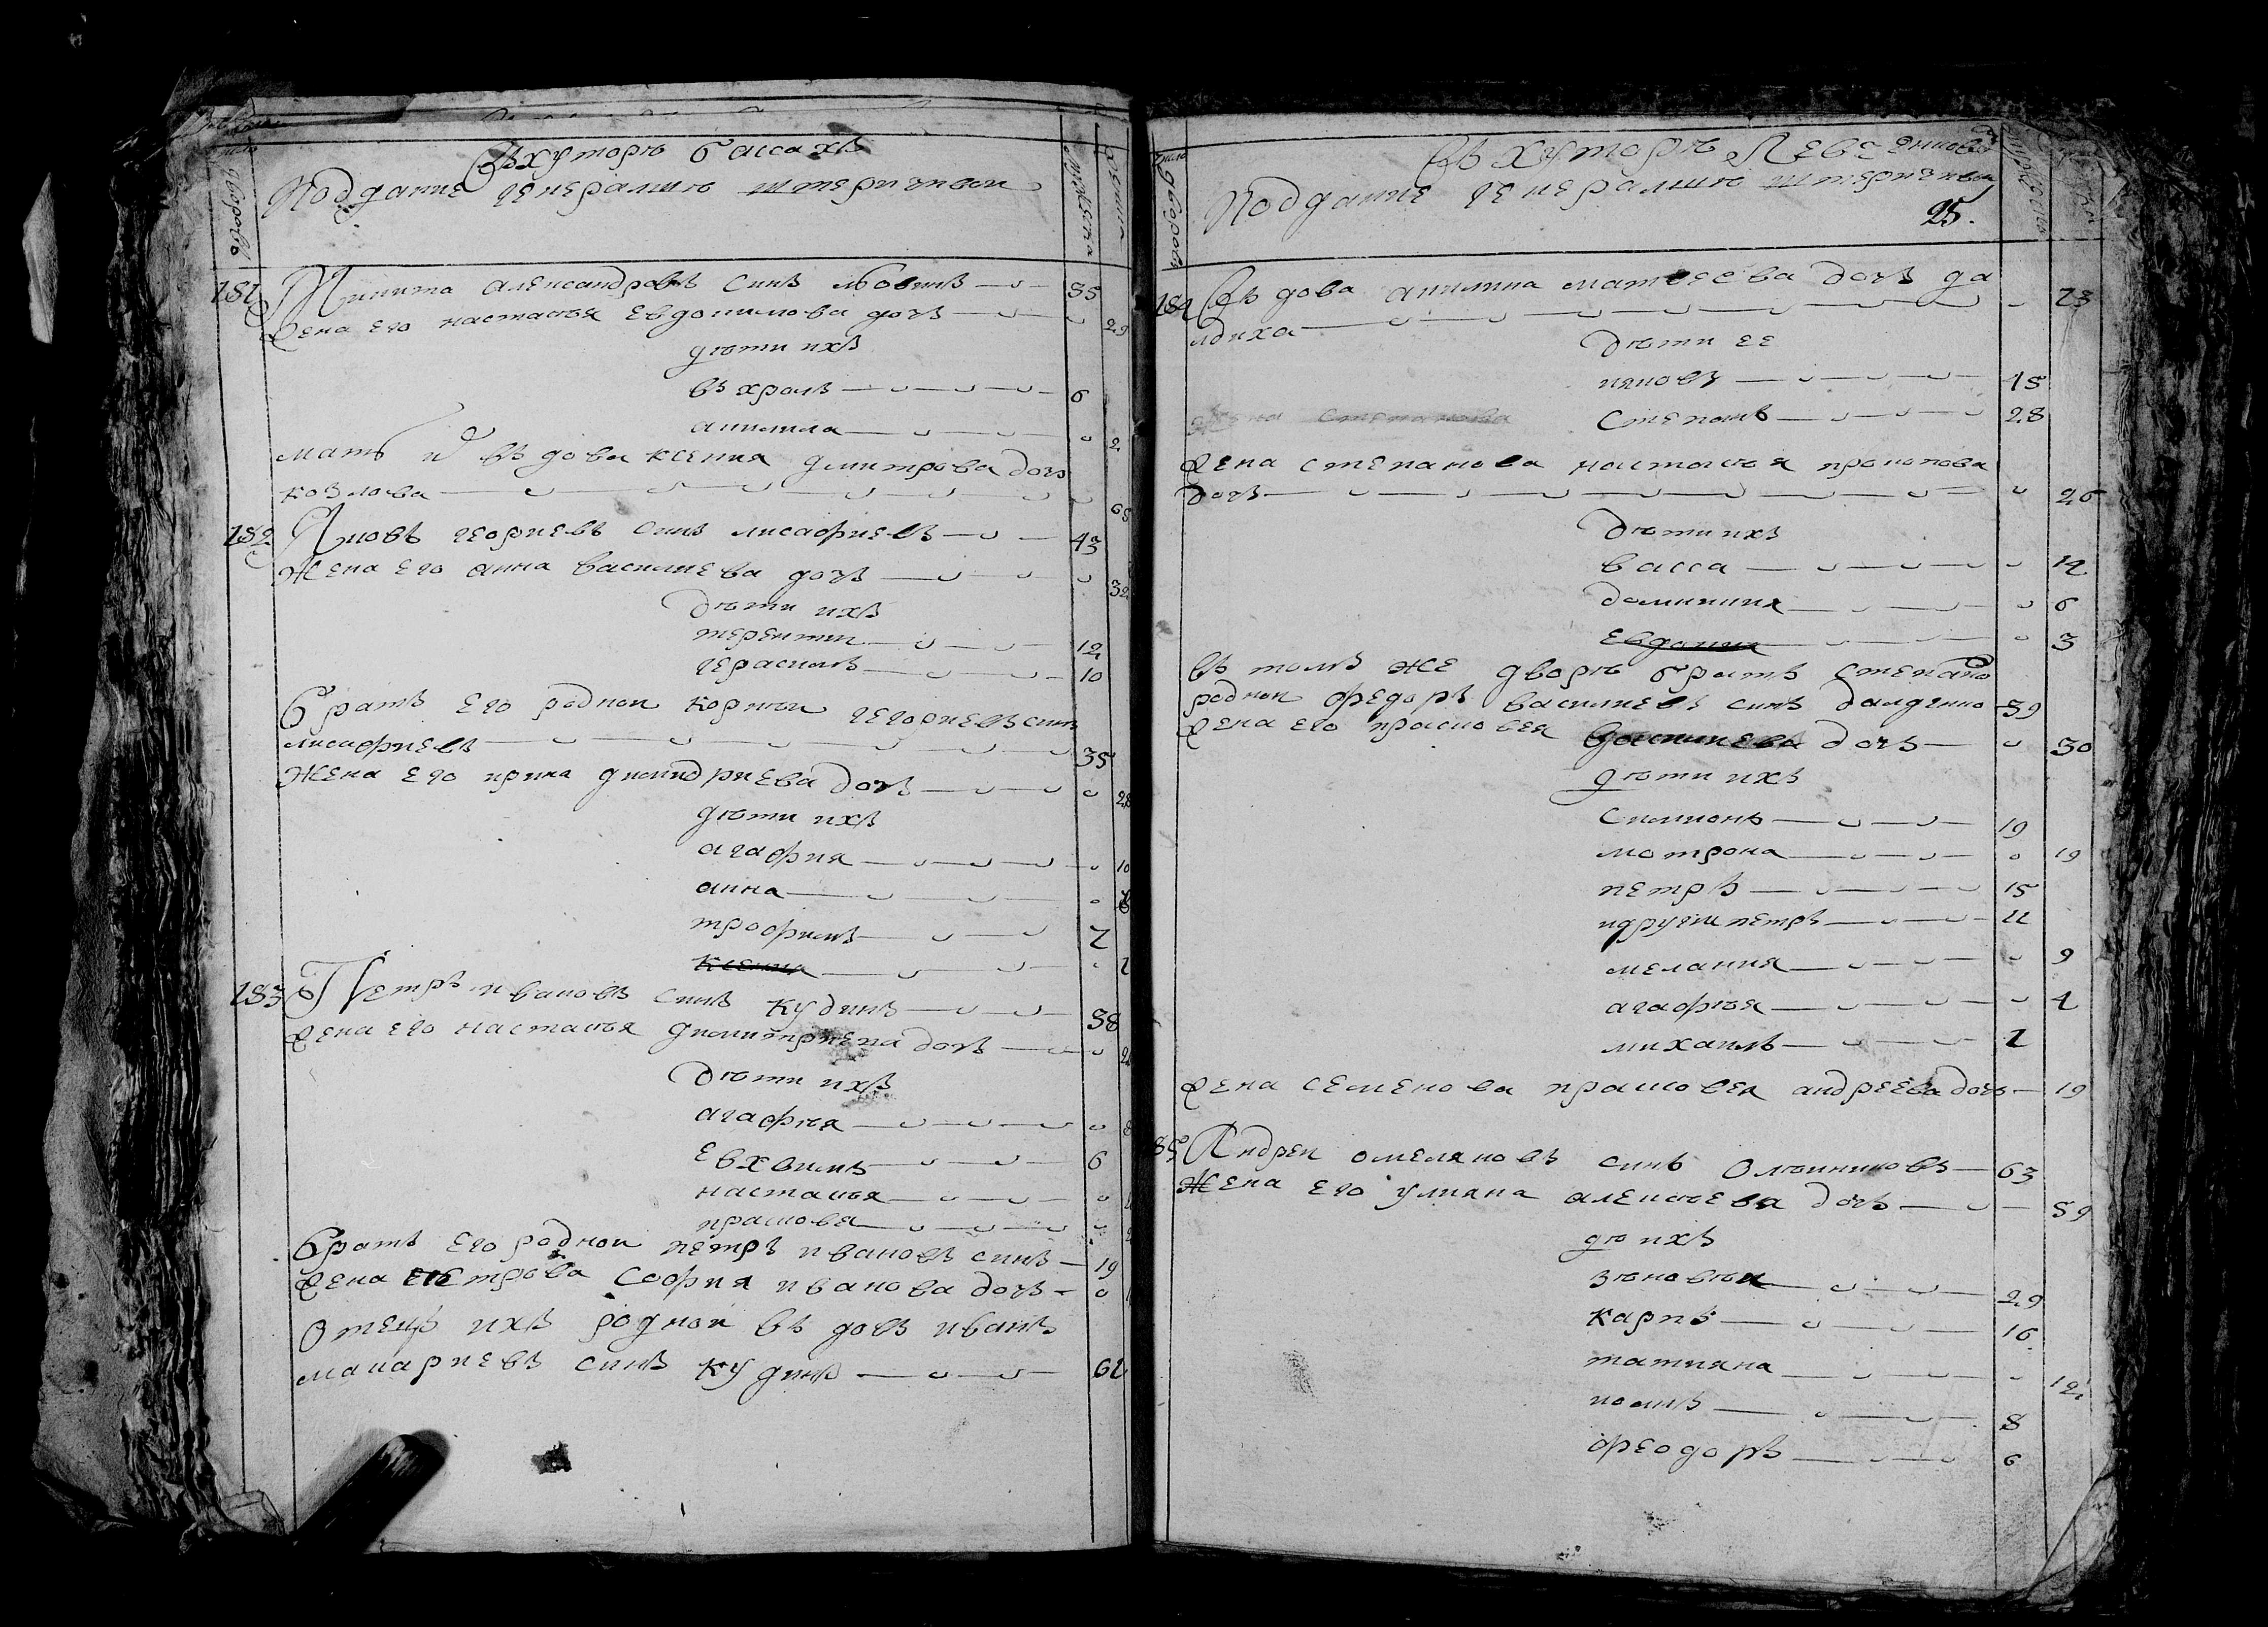 Въ хуторѣ бассахъ
Поддание генералшѣ штеричевои
дворовъ
181 Никита александровъ синъ 35
Жена его настасья евдокимова дочъ 29
дѣти ихъ
вэхрамъ 6
акилина 2
мать и въдова ксения дмитрова дочъ
козлова 68
182 Яковъ георгиевъ синъ лисафиевъ 43
Жена его анна василиева дочъ 32
Дѣти ихъ
терентии 12
герасимъ 10
Братъ его роднои корнеи георгиевъ синъ
лисафиевъ 35
Жена его ирина димидриева дочъ 28
дѣти ихъ
агафия 10
анна
трофимъ 7
ксения 1
183 Петръ ивановъ синъ кудинъ 38
Жена его настасья димитриева дочъ
Дѣти ихъ
агафѣя
евхвимъ 6
настасѣя
прасковя
Братъ его роднои петръ ивановъ синъ 19
Жена петрова софия иванова дочъ
Отецъ ихъ роднои въдовъ иванъ
макариевъ синъ кудинъ 61
Въ хуторѣ
дворовъ
Подданние генералшѣ
25.
184 Въдова акилина матвеева дочъ да
лдиха 73
Дѣти ее
яковъ 15
степанъ 28
жена степанова
Жена степанова настасѣя прокопова
дочъ 26
Дѣти ихъ
васса 12
домникия 6
евдокия 3
Въ томъ же дворѣ братъ степано
роднои федоръ василиевъ синъ далдикко 39
Жена его прасковея дочъ 30
дѣти ихъ
симионъ 19
мотрона 19
петръ 15
идругии петръ 11
мелания 9
агафѣя 4
михаилъ 1
Жена семенова прасковея андреева дочъ 19
185 Андреи омеляновъ синъ олѣиниковъ 63
Жена его уляна алексѣева дочъ 59
дѣ ихъ
зѣновѣи 29
карпъ 16
татияна 12
иоанъ 8
феодоръ 6